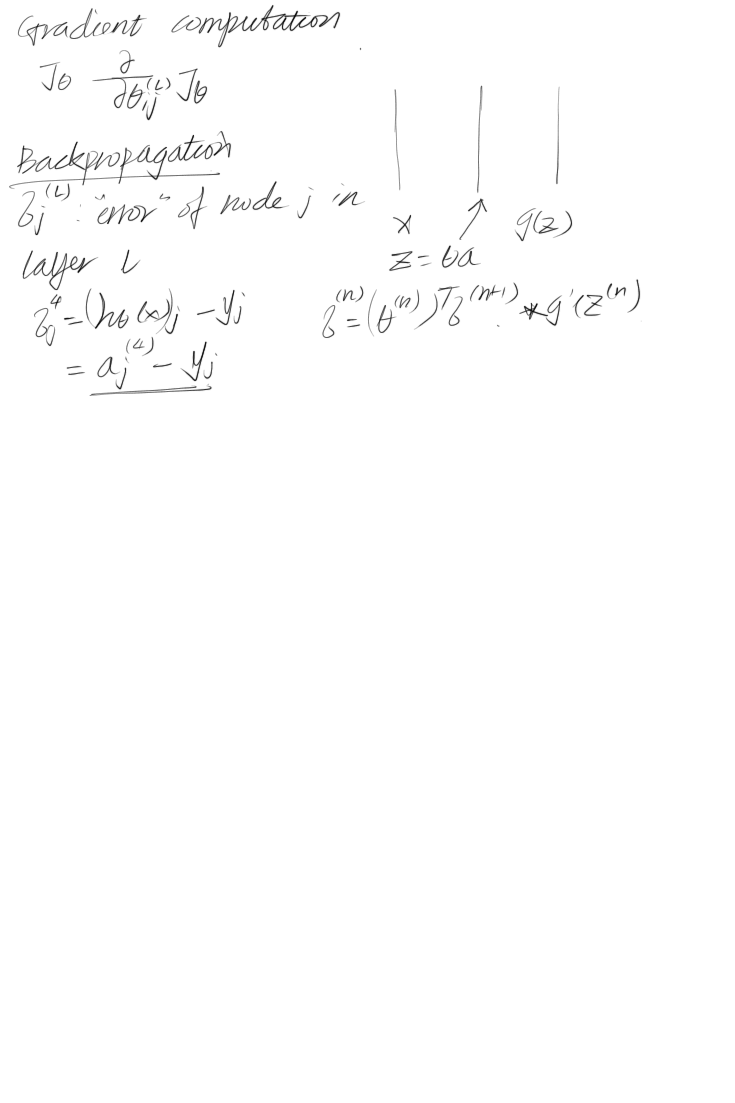 Gradient computation
Jθ ∂/∂θij^(L) Jθ
Backpropagation
δj^(L) : "error" of node j in
layer L
δj^4 = (hθ(x))j - yj
= aj^(4) - yj
x
g(z)
z = θa
δ^(n) = (θ^(n))^T δ^(n+1) .* g'(z^(n)